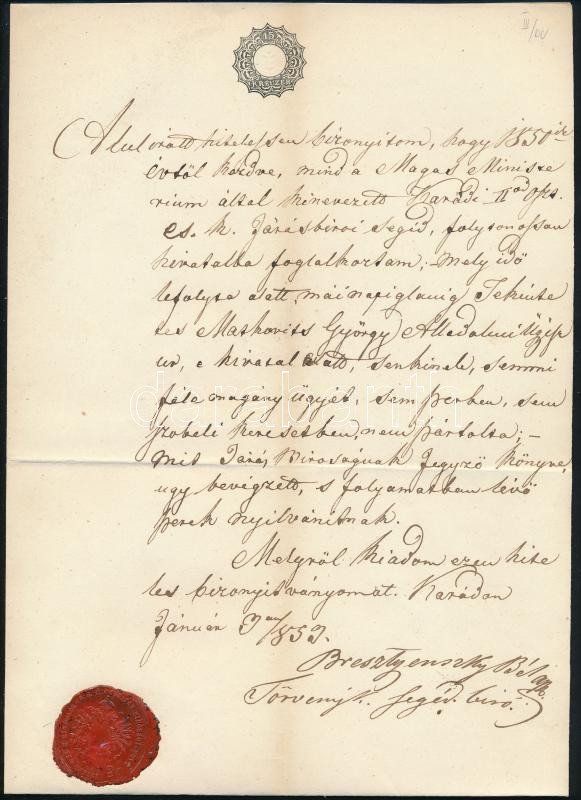 15
KREUZER
III/00
Alulírott hitelessen bizonyitom, hogy 1850ik
évtöl kezdve, mind a Magas Ministe
rium által kinevezett Karádi IIod oszt.
cs. k. Járásbirói segéd, folytonossan
hivatalba foglalkoztam; mely idö
lefolyta alatt, mái napiglanig Tekinte
tes Matkovits György Álladalmi Ügyész
ur, e hivatal elött, senkinek, semmi
féle magány ügyét, sem perben, sem
szobeli keresetben, nem pártolta; –
mit Járás Biroságnak Jegyzö könyve,
ugy bevégzett, s folyamatban lévö
perek nyilvánitnak.
Melyröl kiadom ezen hite
les bizonyitványomat. Karádon
Január 3án 1853.
Bresztyenszky Béla
Törvényk. segéd. biro.
darabanth